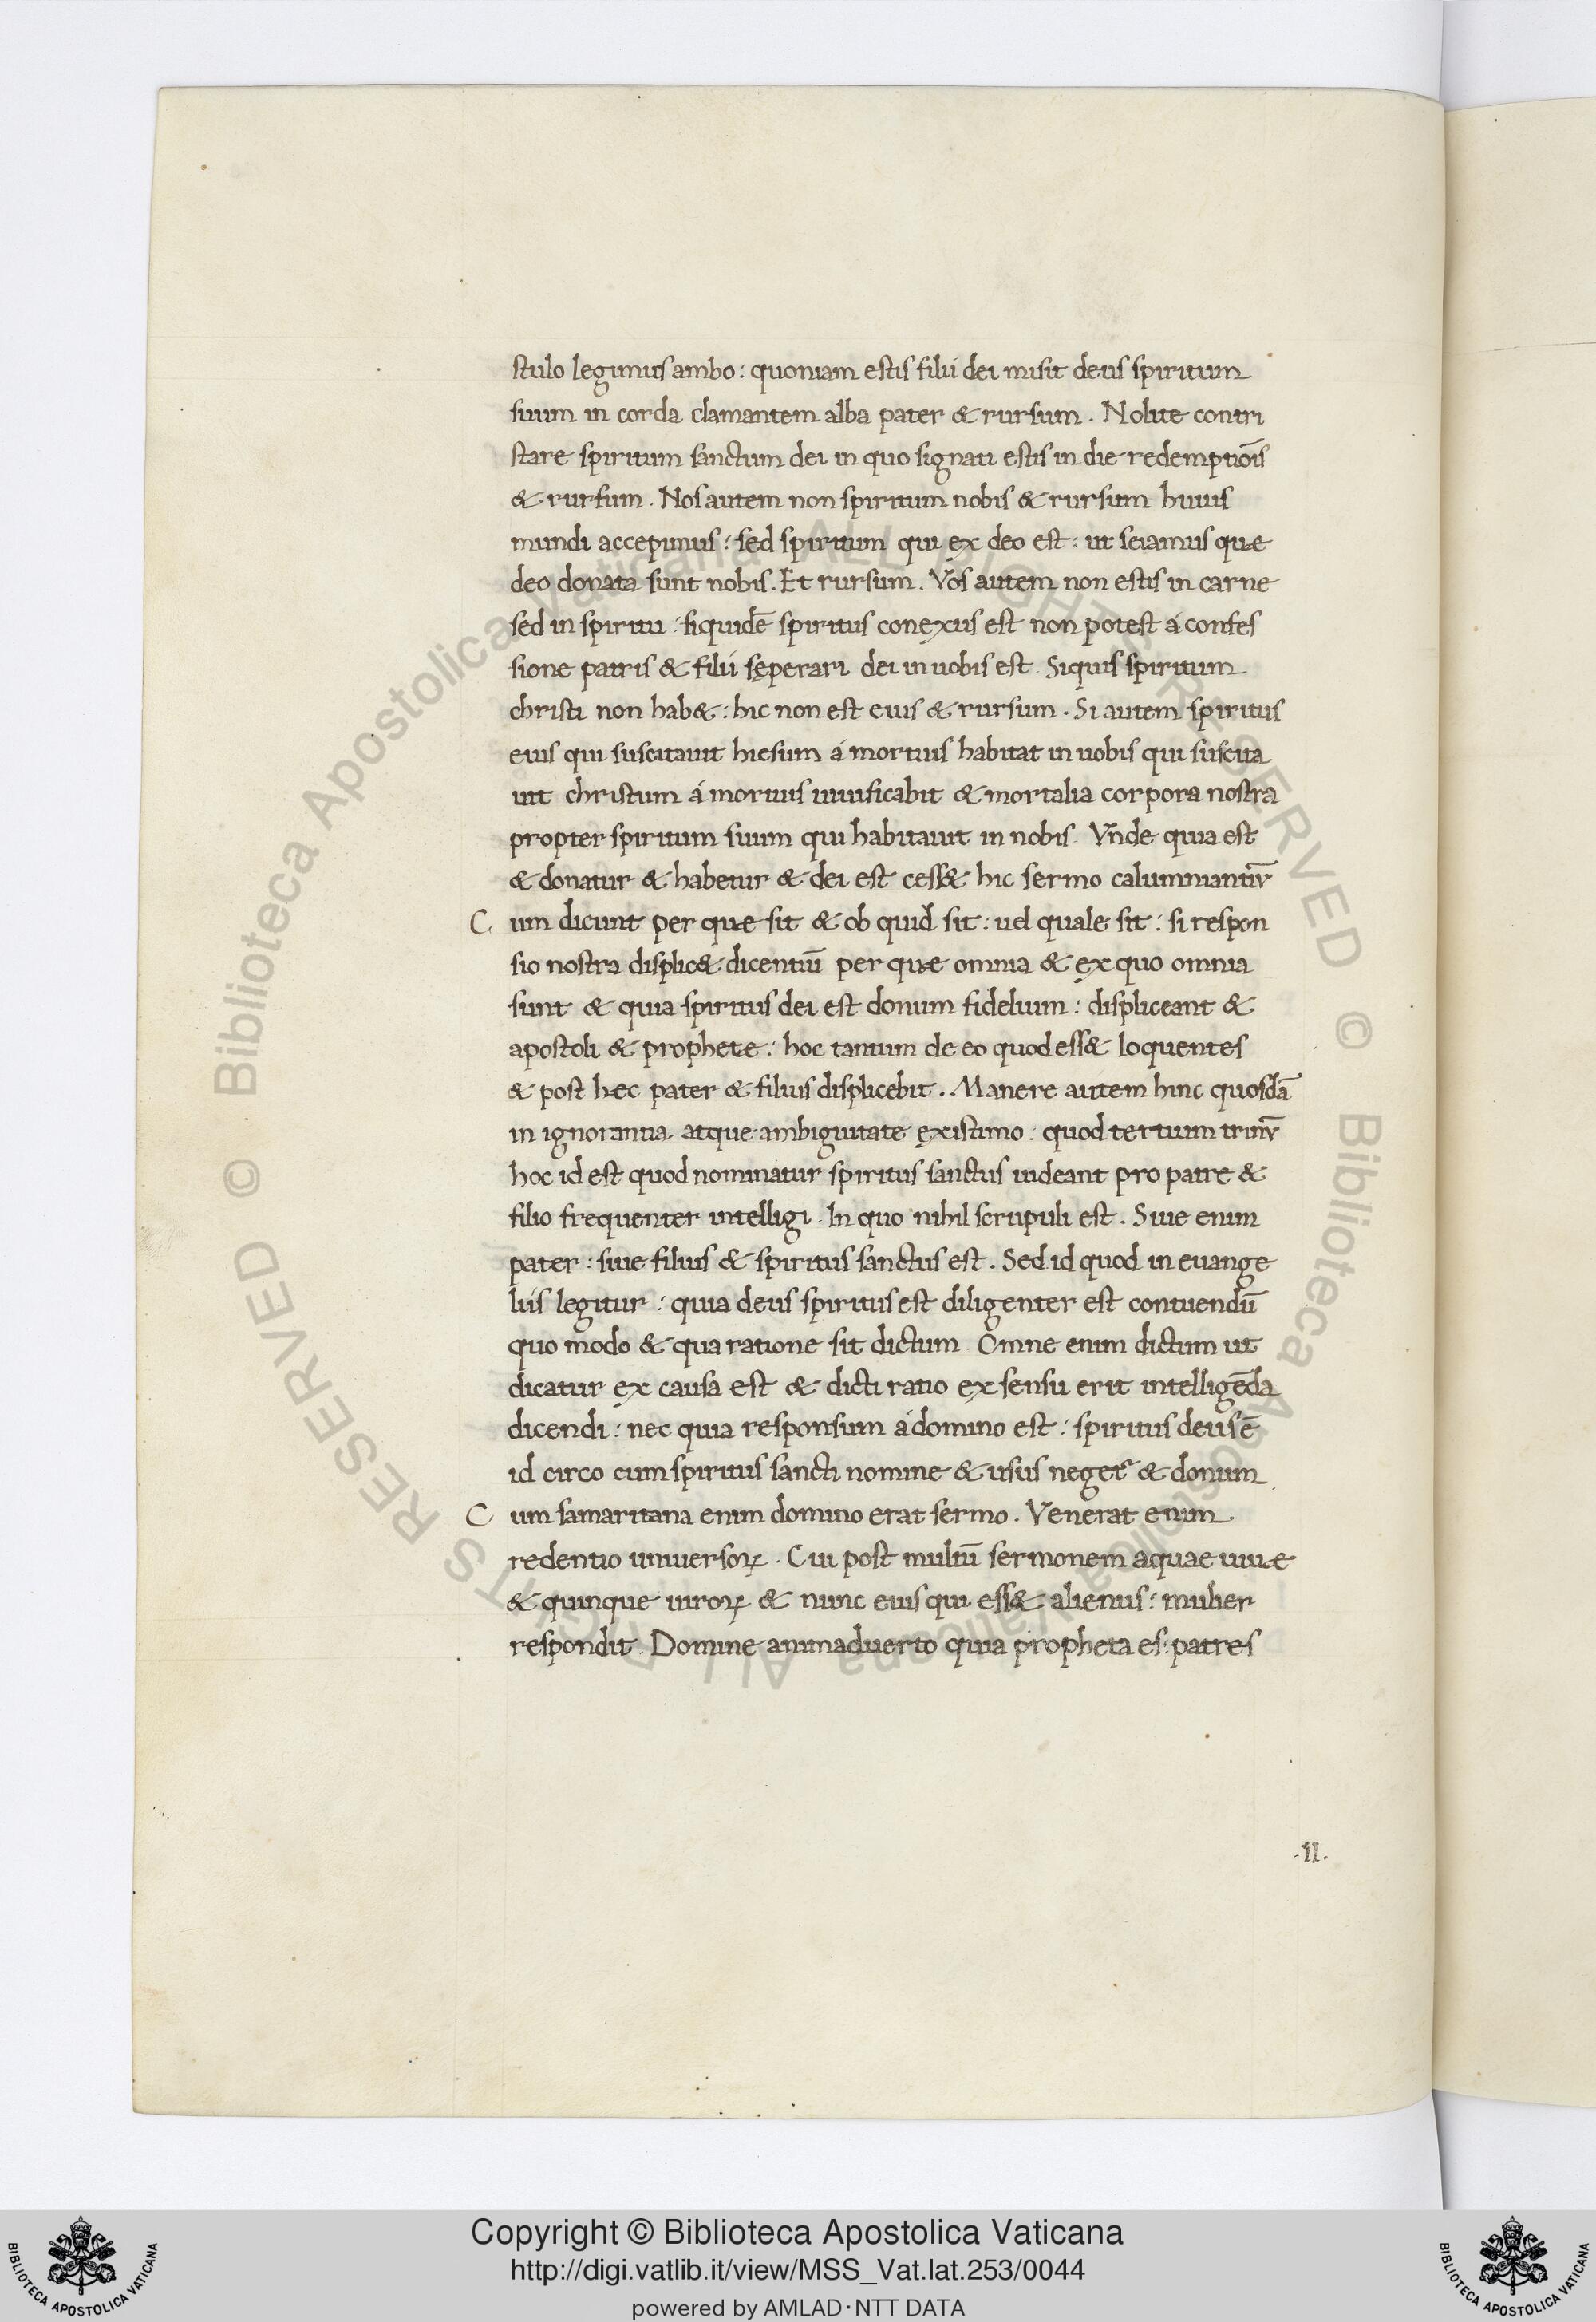 stulo legimus ambo: quoniam estis filii dei misit deus spiritum
suum in corda clamantem alba pater & rursum. Nolite contri
stare spiritum sanctum dei in quo signati estis in die redemptiōis
& rursum. Nos autem non spiritum nobis & rursum huius
mundi accepimus: sed spiritum qui ex deo est: ut sciamus que
deo donata sunt nobis. Et rursum. Vos autem non estis in carne
sed in spiritu: siquidē spiritus conexus est non potest á confes
sione patris & filii sęperari dei in uobis est. Siquis spiritum
christi non hab&: hic non est eius & rursum. Si autem spiritus
eius qui suscitauit hiesum á mortuis habitat in uobis qui suscita
uit christum á mortuis uiuificabit & mortalia corpora nostra
propter spiritum suum qui habitauit in nobis. Vn̄de quia est
& donatur & habetur & dei est cess& hic sermo calumniantiū
C um dicunt per que sit & ob quid sit: uel quale sit: si respon
sio nostra displic& dicentiū per que omnia & ex quo omnia
sunt & quia spiritus dei est donum fidelium: displiceant &
apostoli & prophete: hoc tantum de eo quod ess& loquentes
& post hec pater & filius displicebit. Manere autem hinc quosdā
in ignorantia atque ambiguitate existimo: quod tertium
hoc id est quod nominatur spiritus sanctus uideant pro patre &
filio frequenter intelligi. In quo nihil scrupuli est. Siue enim
pater: siue filius & spiritus sanctus est. Sed id quod in euange
liis legitur: quia deus spiritus est diligenter est contuendū
quo modo & qua ratione sit dictum. Omne enim dictum ut
dicatur ex causa est & dicti ratio ex sensu erit intelligēda
dicendi: nec quia responsum á domino est: spiritus deus ē
id circo cum spiritus sancti nomine & usus neget᷑ & donum
C um samaritana enim domino erat sermo. Venerat enim
redentio uniuersoꝝ. Cui post multū sermonem aquae uiue
& quinque uiroꝝ & nunc eius qui ess& alienus: mulier
respondit. Domine animaduerto quia propheta es: patres
.11.
© Biblioteca Apostolica Vaticana ALL RIGHTS RESERVED
© Biblioteca Apostolica Vaticana ALL RIGHTS RESERVED
Copyright © Biblioteca Apostolica Vaticana
http://digi.vatlib.it/view/MSS_Vat.lat.253/0044
powered by AMLAD·NTT DATA
BIBLIOTECA APOSTOLICA VATICANA
BIBLIOTECA APOSTOLICA VATICANA